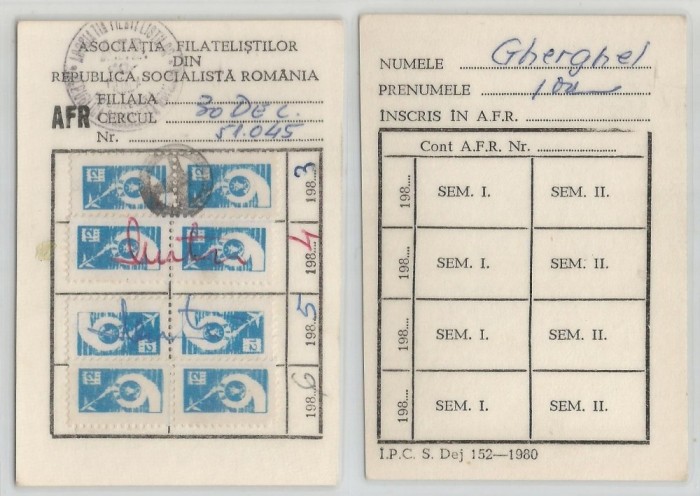 ASOCIAȚIA FILATELIȘTILOR
DIN
REPUBLICA SOCIALISTĂ ROMÂNIA
AFR
FILIALA
CERCUL 30 DEC.
Nr. 51.045
1983
1984
1985
1986
NUMELE Gherghel
PRENUMELE Ion
ÎNSCRIS ÎN A.F.R.
Cont A.F.R. Nr.
198.... SEM. I. SEM. II.
198.... SEM. I. SEM. II.
198.... SEM. I. SEM. II.
198.... SEM. I. SEM. II.
I.P.C. S. Dej 152—1980